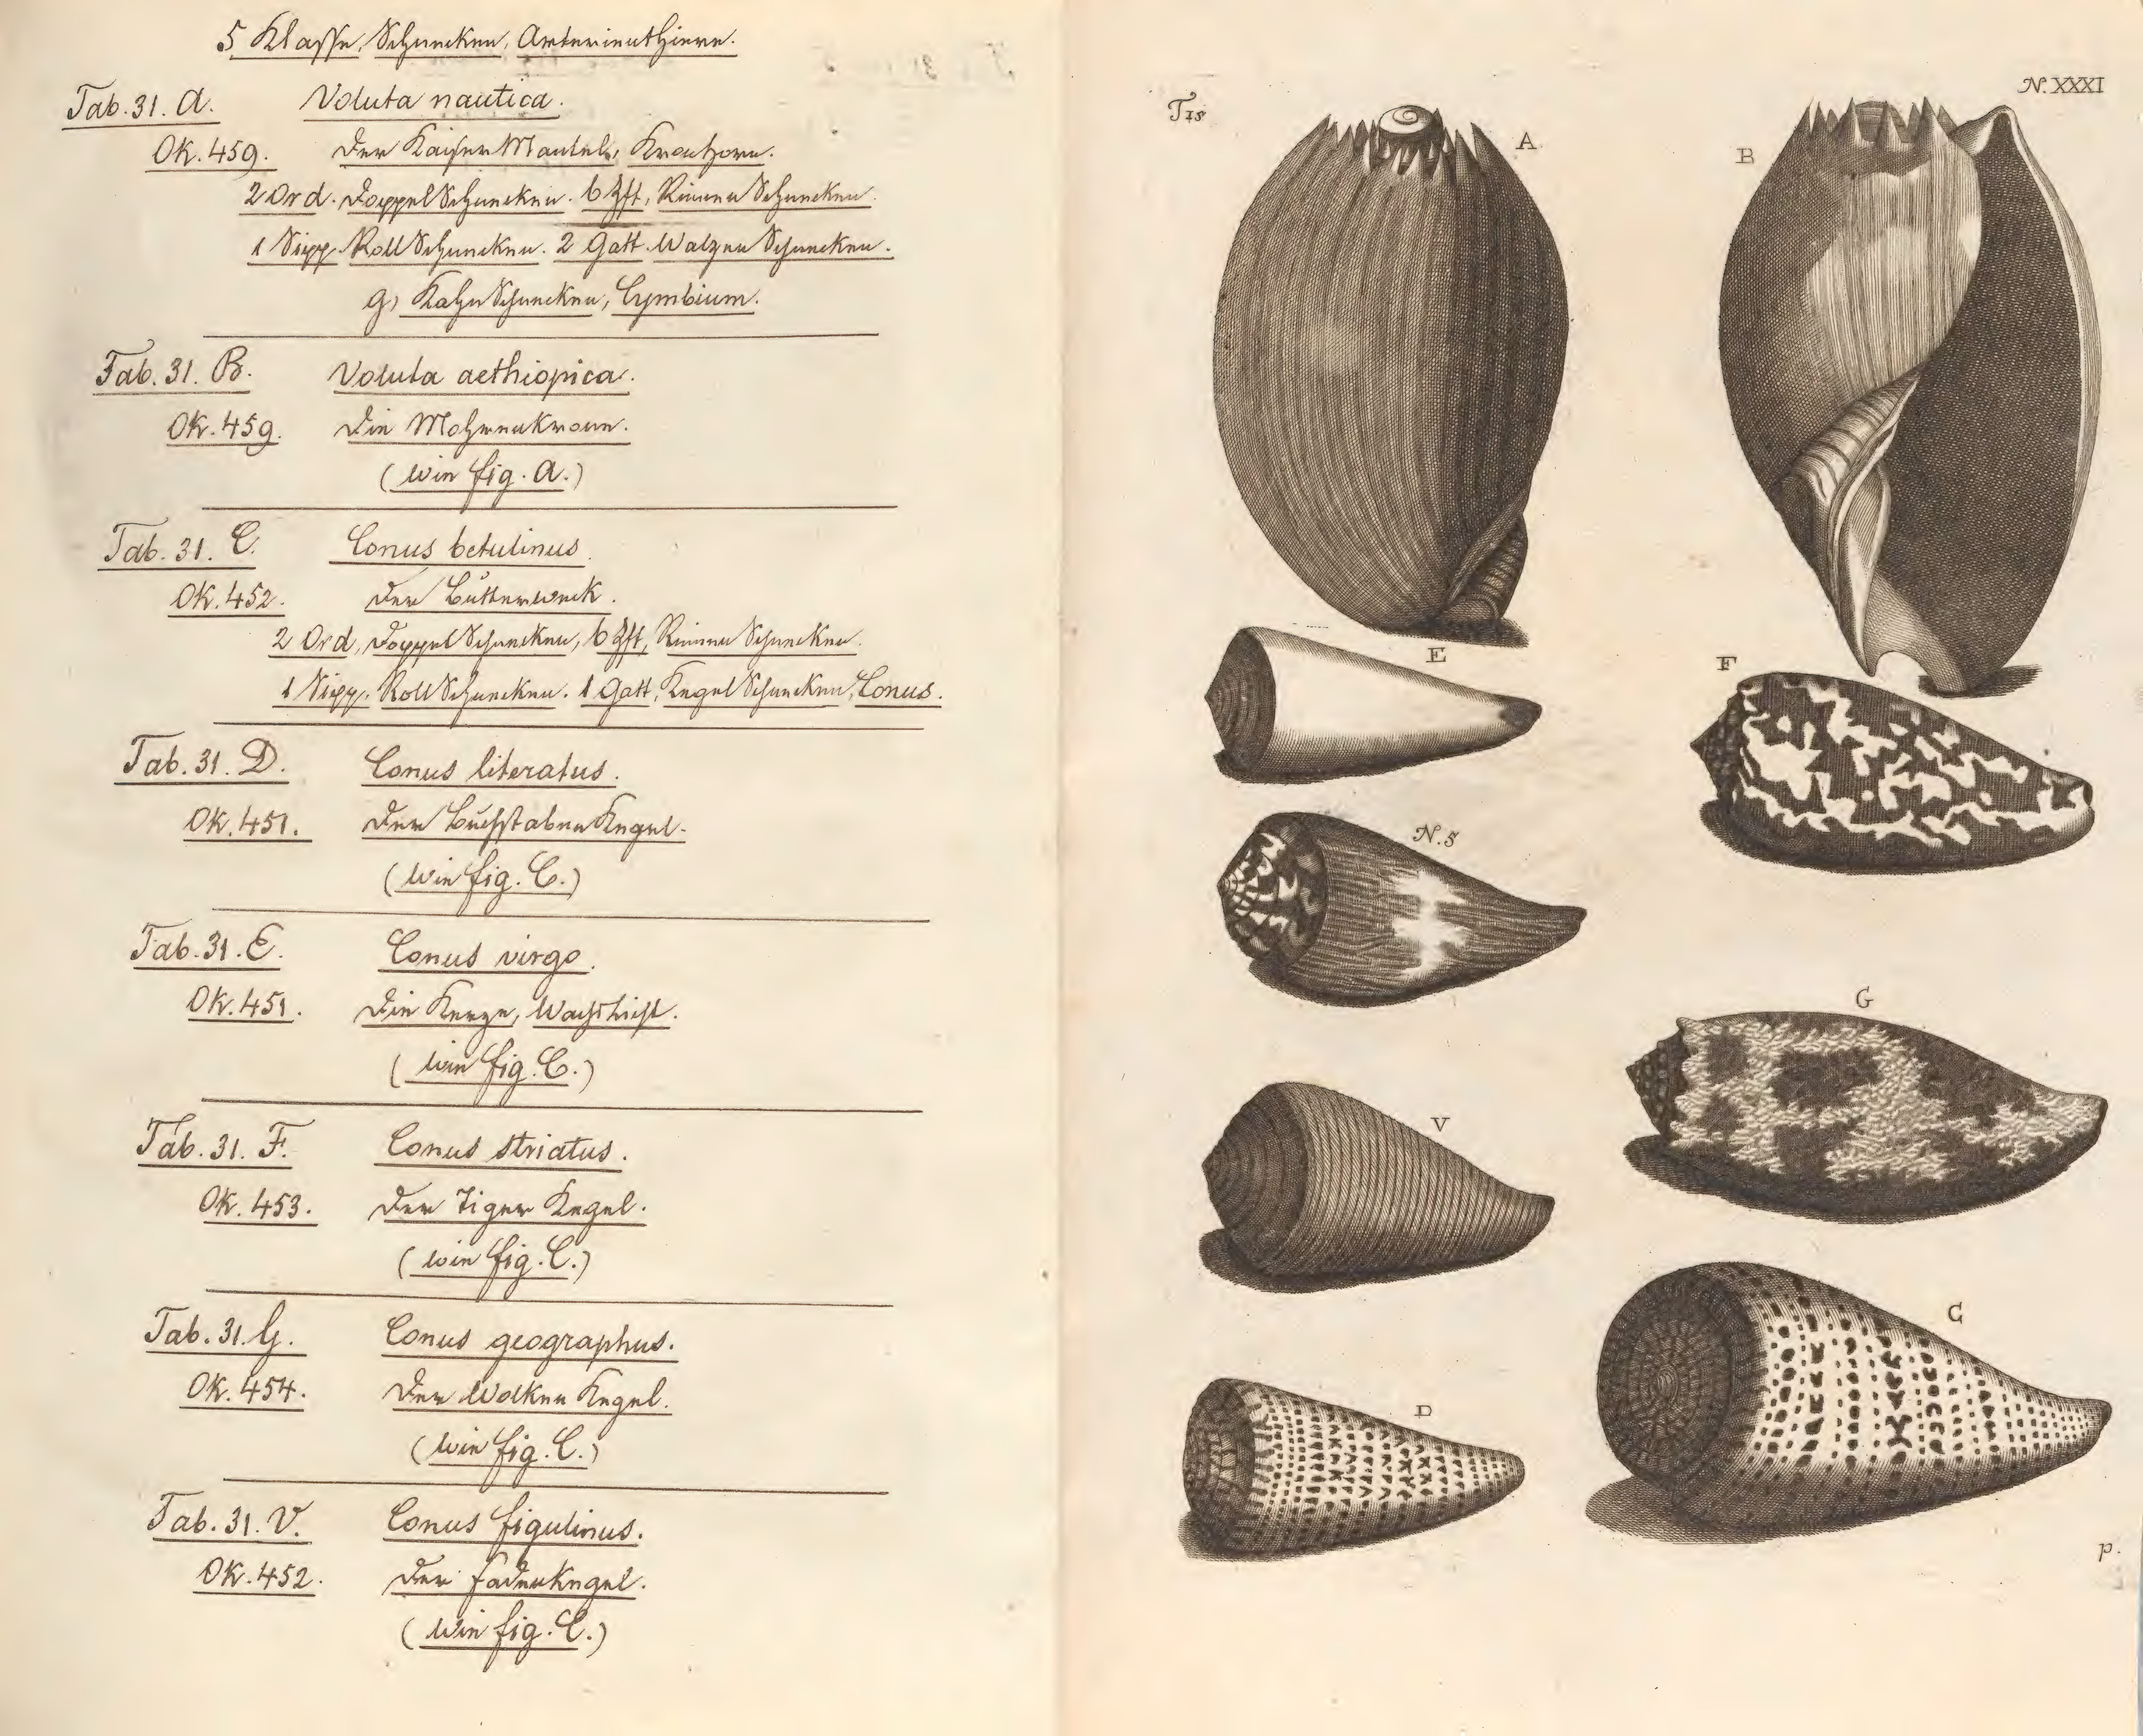 5 Klasse, Schnecken, Arterienthiere.
Tab. 31. A. Voluta nautica.
Ok. 459. Der Kaiser Mantel, Kronhorn.
2 Ord. Doppel Schnecken. 6 Zft, Rinnen Schnecken.
1 Sipp. Roll Schnecken. 2 Gatt. Walzen Schnecken.
g, Kahn Schnecken, Cymbium.
Tab. 31. B. Voluta aethiopica.
Ok. 459. Die Mohrenkrone.
(wie fig. A.)
Tab. 31. C. Conus betulinus.
Ok. 452. Der Butterweck.
2 Ord, Doppel Schnecken, 6 Zft, Rinnen Schnecken.
1 Sipp. Roll Schnecken. 1 Gatt, Kegel Schnecken, Conus.
Tab. 31. D. Conus literatus.
Ok. 451. Der Buchstaben Kegel.
(wie fig. C.)
Tab. 31. E. Conus virgo.
Ok. 451. Die Kerze, Wachslicht.
(wie fig. C.)
Tab. 31. F. Conus striatus.
Ok. 453. Der Tiger Kegel.
(wie fig. C.)
Tab. 31. G. Conus geographus.
Ok. 454. Der Wolken Kegel.
(wie fig. C.)
Tab. 31. V. Conus figulinus.
Ok. 452. Der Fadenkegel.
(wie fig. C.)
N. XXXI
A
B
E
F
N. 5
G
V
C
D
p.